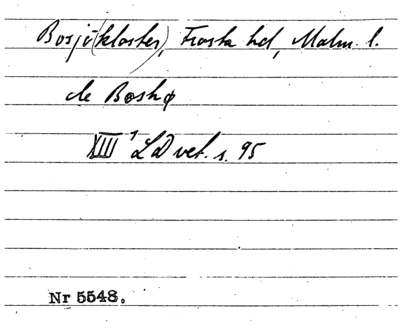 Bosjö(kloster), Frosta hd, Malm. l.
de Boshø
XIII¹ LD vet. s. 95
Nr 5548.